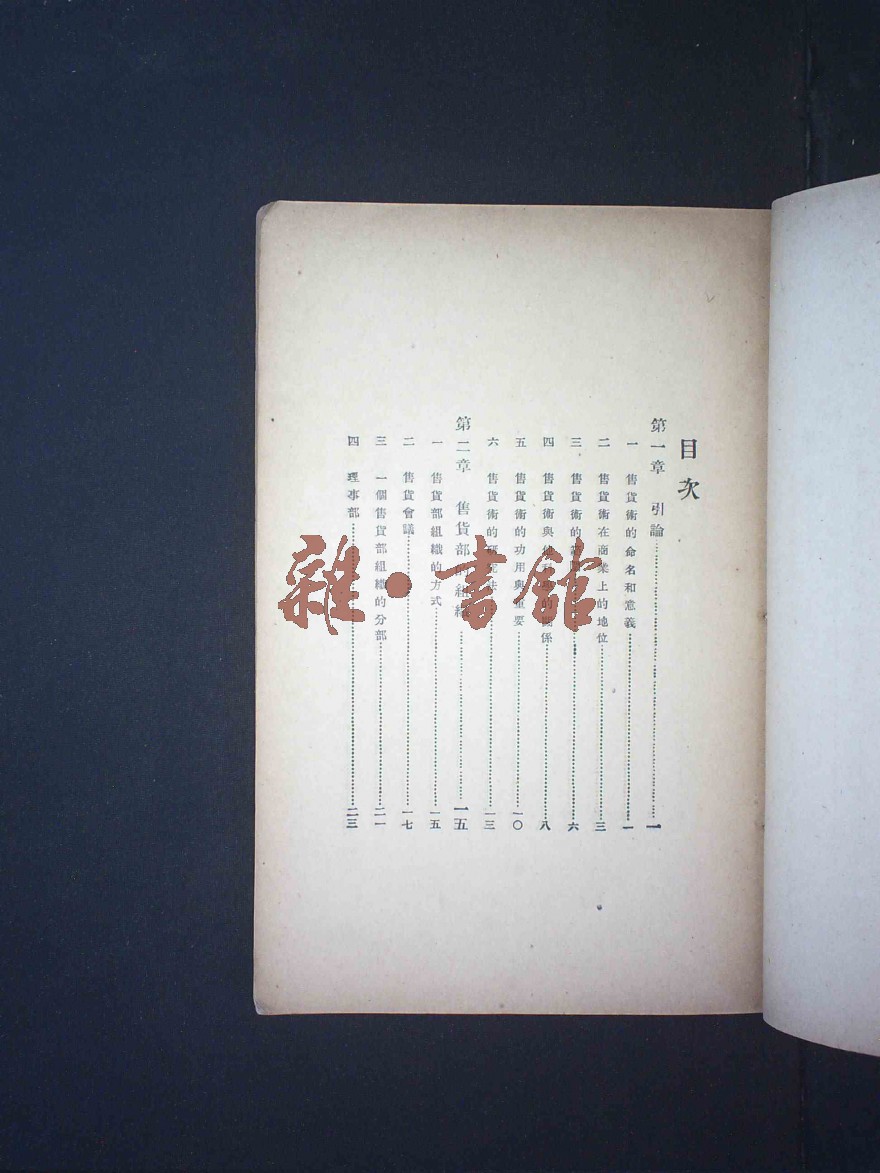 目次
第一章 引論 一
一 售貨術的命名和意義 一
二 售貨術在商業上的地位 三
三 售貨術的 六
四 售貨術與 的關係 八
五 售貨術的功用與重要 一〇
六 售貨術的 一三
第二章 售貨部的組織 一五
一 售貨部組織的方式 一五
二 售貨會議 一七
三 一個售貨部組織的分部 二一
四 理事部 二三
雜·書館